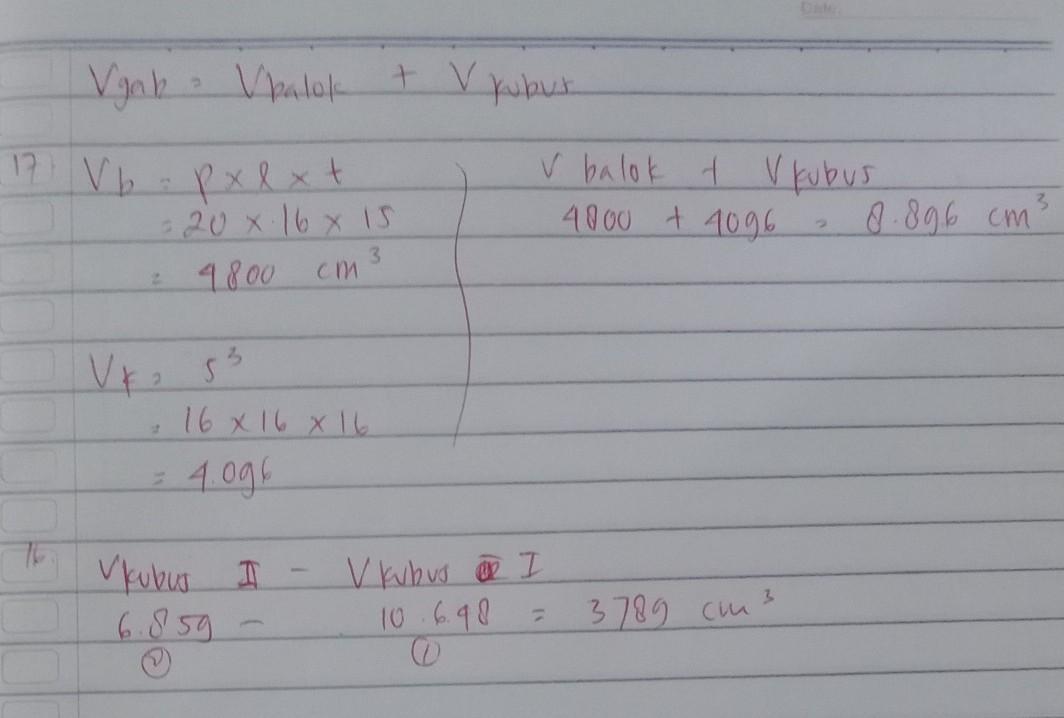 Date.
Vgab = Vbalok + Vkubus
17) Vb = p x l x t
= 20 x 16 x 15
= 4800 cm³
Vk = s³
= 16 x 16 x 16
= 4.096
V balok + V kubus
4800 + 4096 = 8.896 cm³
16. Vkubus II - Vkubus I
6.859 - 10.648 = 3789 cm³
② ①